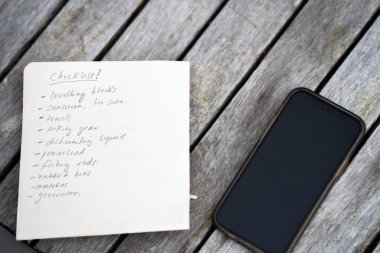 Checklist!
- levelling blocks
- sunscreen
- towels
- fishing gear
- dishwashing liquid
- powerlead
- fishing rods
- rubbish bins
- matches
- generator.